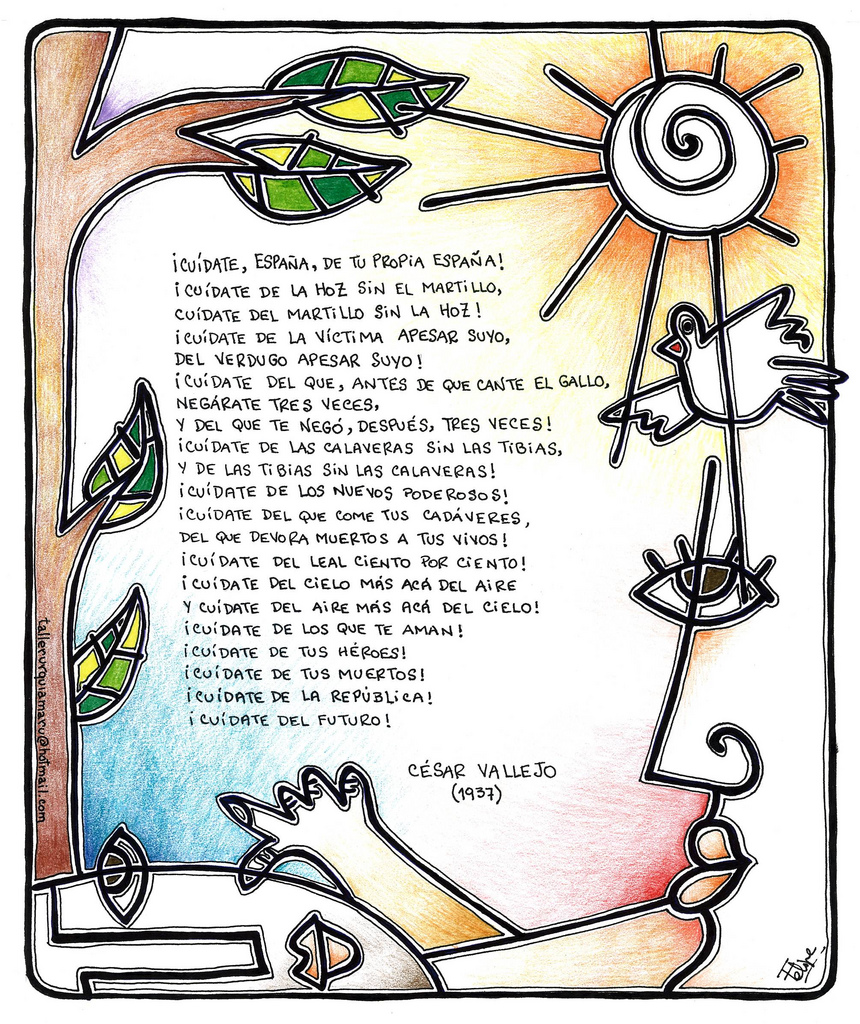 ¡CUÍDATE, ESPAÑA, DE TU PROPIA ESPAÑA!
¡CUÍDATE DE LA HOZ SIN EL MARTILLO,
CUÍDATE DEL MARTILLO SIN LA HOZ!
¡CUÍDATE DE LA VÍCTIMA APESAR SUYO,
DEL VERDUGO APESAR SUYO!
¡CUÍDATE DEL QUE, ANTES DE QUE CANTE EL GALLO,
NEGÁRATE TRES VECES,
Y DEL QUE TE NEGÓ, DESPUÉS, TRES VECES!
¡CUÍDATE DE LAS CALAVERAS SIN LAS TIBIAS,
Y DE LAS TIBIAS SIN LAS CALAVERAS!
¡CUÍDATE DE LOS NUEVOS PODEROSOS!
¡CUÍDATE DEL QUE COME TUS CADÁVERES,
DEL QUE DEVORA MUERTOS A TUS VIVOS!
¡CUÍDATE DEL LEAL CIENTO POR CIENTO!
¡CUÍDATE DEL CIELO MÁS ACÁ DEL AIRE
Y CUÍDATE DEL AIRE MÁS ACÁ DEL CIELO!
¡CUÍDATE DE LOS QUE TE AMAN!
¡CUÍDATE DE TUS HÉROES!
¡CUÍDATE DE TUS MUERTOS!
¡CUÍDATE DE LA REPÚBLICA!
¡CUÍDATE DEL FUTURO!
CÉSAR VALLEJO
(1937)
Felipe